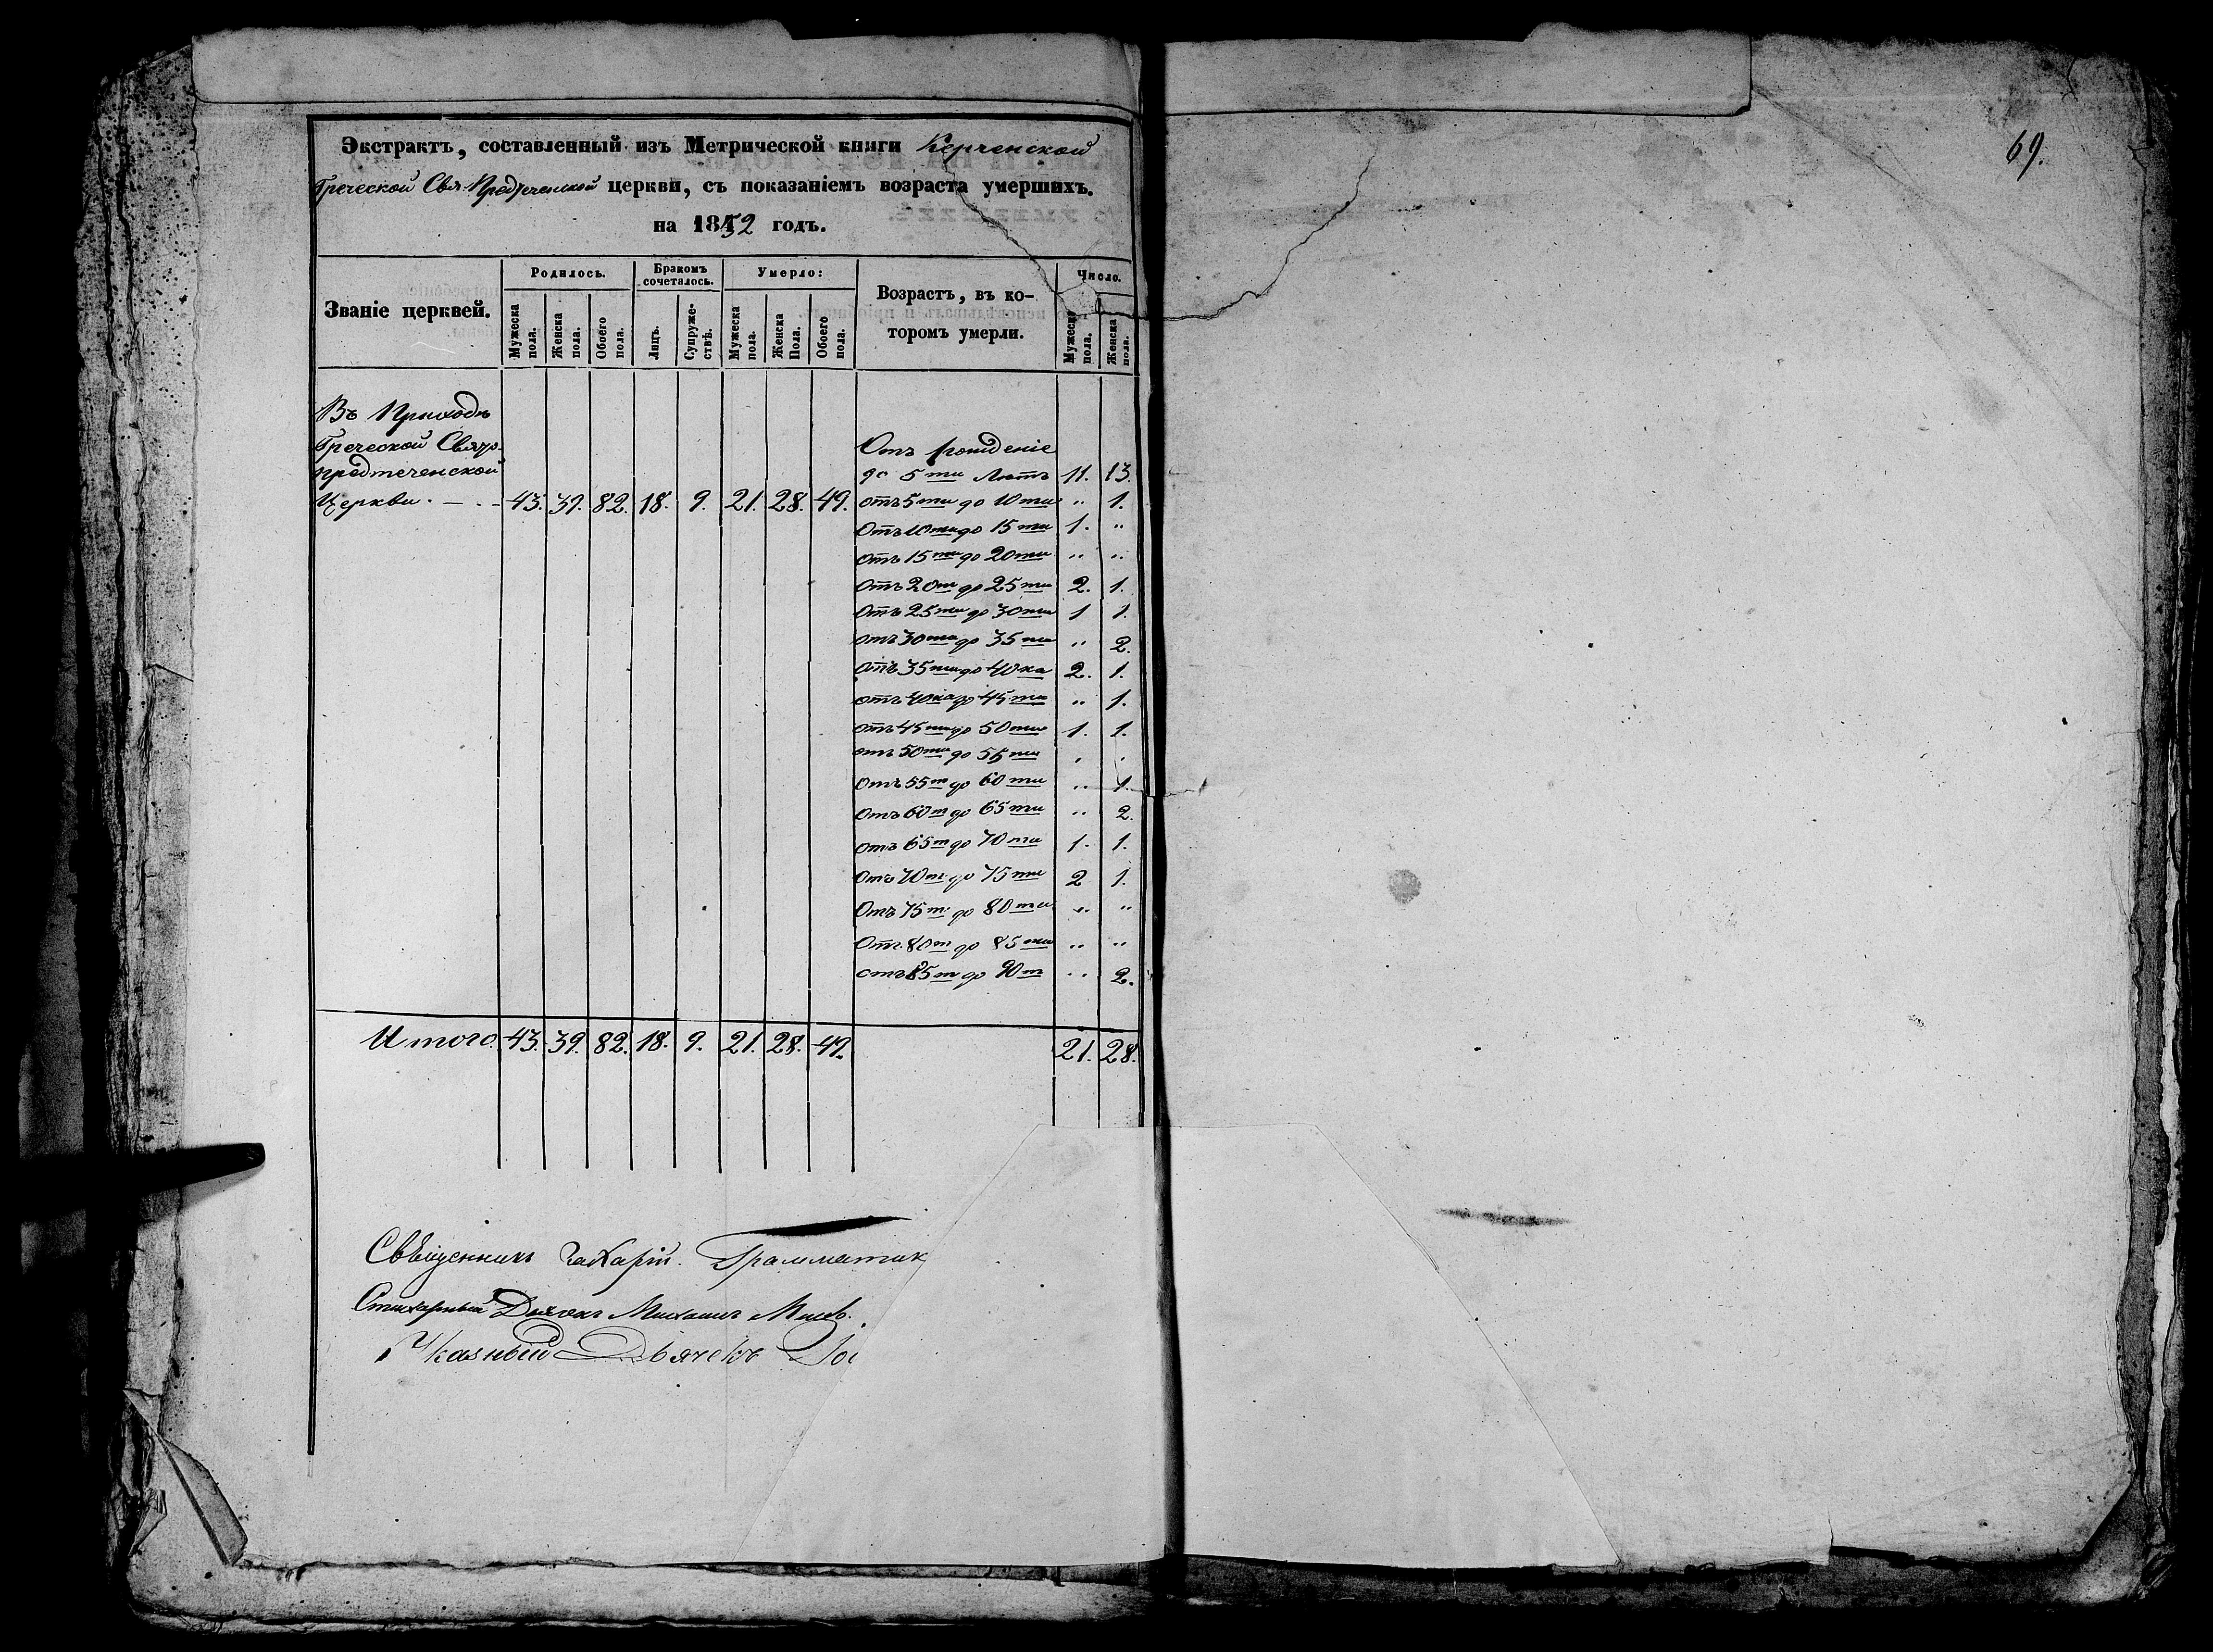 Экстрактъ, составленный изъ Метрической книги Керченской
Греческой Свя-Предтеченской церкви, съ показаніемъ возраста умершихъ.
на 1852 годъ.
Званіе церквей.
Родилось.
Мужеска пола.
Женска пола.
Обоего пола.
Бракомъ сочеталось.
Лицъ.
Супружествъ.
Умерло:
Мужеска пола.
Женска Пола.
Обоего пола.
Возрастъ, въ которомъ умерли.
Число.
Мужеска пола.
Женска пола.
Въ Приходѣ
Греческой Свято-
предтеченской
Церкви. — . - 43. 39. 82. 18. 9. 21. 28. 49.
Отъ рожденіе
до 5ти Лѣтъ 11. 13.
отъ 5ти до 10ти " 1.
Отъ 10ти до 15ти 1. "
отъ 15ти до 20ти " "
Отъ 20т до 25ти 2. 1.
Отъ 25ти до 30ти 1 1.
отъ 30ти до 35ти " 2.
отъ 35ти до 40ка 2. 1.
отъ 40ка до 45ти " 1.
отъ 45ти до 50ти 1. 1.
отъ 50ти до 55ти . .
Отъ 55т до 60ти " 1.
Отъ 60т до 65ти " 2.
отъ 65т до 70ти 1. 1.
Отъ 70т до 75ти 2 1.
Отъ 75т до 80ти " "
Отъ 80т до 85ти " "
отъ 85т до 90т " 2.
Итого. 43. 39. 82. 18. 9. 21. 28. 49. 21. 28.
Свѣщенникъ Захарій. Грамматик
Стихарный Дьячокъ Михаилъ
Указный Дьячекъ
69.